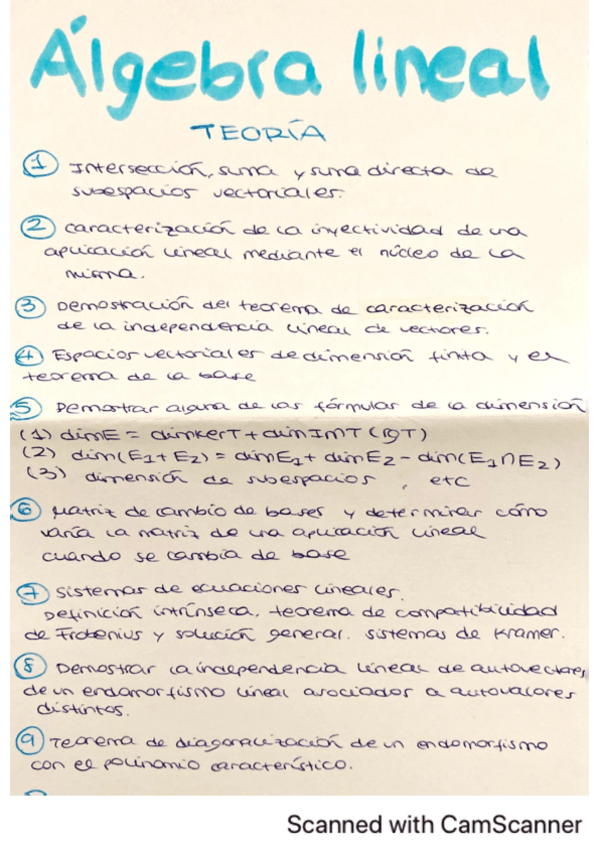 Álgebra lineal
TEORÍA
① Intersección, suma y suma directa de
subespacios vectoriales.
② Caracterización de la inyectividad de una
aplicación lineal mediante el núcleo de la
misma.
③ Demostración del teorema de caracterización
de la independencia lineal de vectores.
④ Espacios vectoriales de dimensión finita y el
teorema de la base
⑤ Demostrar alguna de las fórmulas de la dimensión
(1) dimE = dimkerT + dimImT (rgT)
(2) dim(E₁+E₂) = dimE₁ + dimE₂ - dim(E₁∩E₂)
(3) dimensión de subespacios, etc
⑥ Matriz de cambio de bases y determinar cómo
varía la matriz de una aplicación lineal
cuando se cambia de base
⑦ Sistemas de ecuaciones lineales.
Definición intrínseca, teorema de compatibilidad
de Frobenius y solución general. Sistemas de Kramer.
⑧ Demostrar la independencia lineal de autovectores
de un endomorfismo lineal asociados a autovalores
distintos.
⑨ Teorema de diagonalización de un endomorfismo
con el polinomio característico.
Scanned with CamScanner